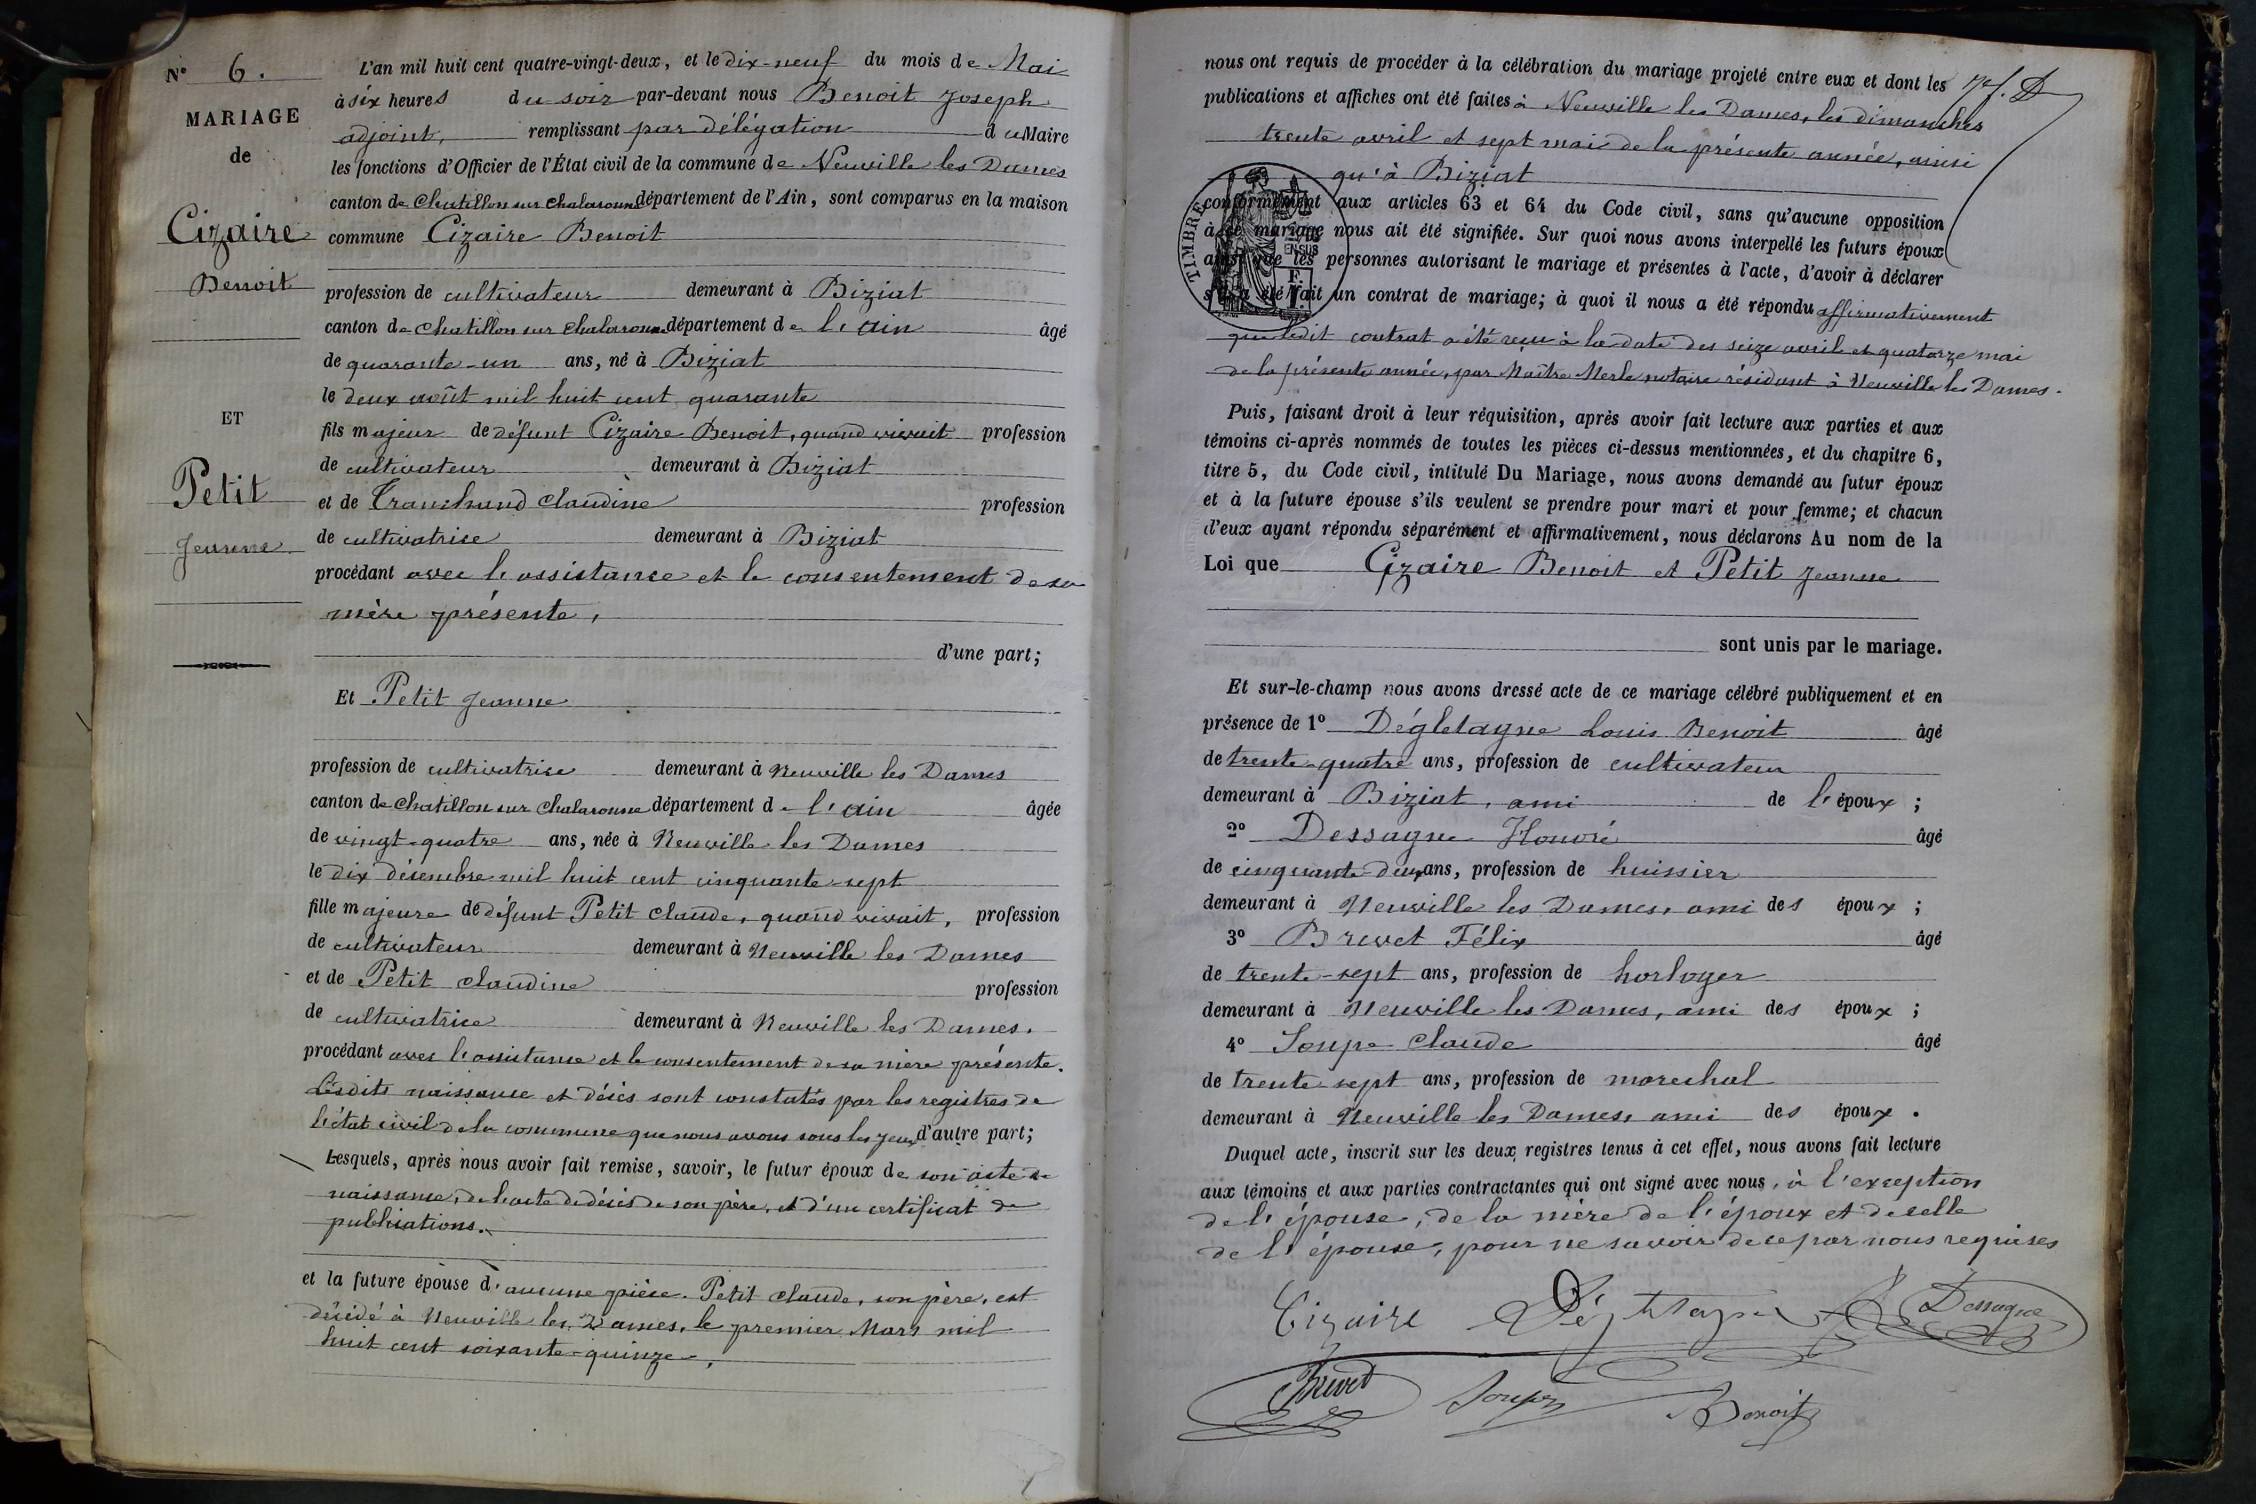 N° 6.
MARIAGE
de
Cizaire
Benoit
ET
Petit
Jeanne
L'an mil huit cent quatre-vingt-deux, et le dix-neuf du mois de Mai
à six heures du soir par-devant nous Benoit Joseph
adjoint, remplissant par délégation du Maire
les fonctions d'Officier de l'État civil de la commune de Neuville les Dames
canton de Chatillon sur Chalaronne département de l'Ain, sont comparus en la maison
commune Cizaire Benoit
profession de cultivateur demeurant à Biziat
canton de Chatillon sur Chalaronne département de l'ain âgé
de quarante-un ans, né à Biziat
le deux août mil huit cent quarante
fils majeur de défunt Cizaire Benoit, quand vivait profession
de cultivateur demeurant à Biziat
et de Tranchand Claudine profession
de cultivatrise demeurant à Biziat
procédant avec l'assistance et le consentement de sa
mère présente,
d'une part;
Et Petit Jeanne
profession de cultivatrise demeurant à Neuville les Dames
canton de Chatillon sur Chalaronne département de l'ain âgée
de vingt-quatre ans, née à Neuville les Dames
le dix décembre mil huit cent cinquante-sept
fille majeure de défunt Petit Claude, quand vivait, profession
de cultivateur demeurant à Neuville les Dames
et de Petit Claudine profession
de cultivatrice demeurant à Neuville les Dames.
procédant avec l'assistance et le consentement de sa mère présente.
Lesdits naissance et décès sont constatés par les registres de
l'état civil de la commune que nous avons sous les yeux d'autre part;
Lesquels, après nous avoir fait remise, savoir, le futur époux de son acte de
naissance, de l'acte de décès de son père, et d'un certificat de
publications.
et la future épouse d'aucune pièce. Petit Claude, son père, est
décédé à Neuville les Dames, le premier Mars mil
huit cent soixante-quinze.
nous ont requis de procéder à la célébration du mariage projeté entre eux et dont les
publications et affiches ont été faites à Neuville les Dames, les dimanches
trente avril et sept mai de la présente année, ainsi
qu'à Biziat
TIMBRE
conformément aux articles 63 et 64 du Code civil, sans qu'aucune opposition
à ce mariage nous ait été signifiée. Sur quoi nous avons interpellé les futurs époux
ainsi que les personnes autorisant le mariage et présentes à l'acte, d'avoir à déclarer
s'il a été fait un contrat de mariage; à quoi il nous a été répondu affirmativement
que ledit contrat a été reçu à la date des seize avril et quatorze mai
de la présente année, par Maître Merle notaire résidant à Neuville les Dames.
Puis, faisant droit à leur réquisition, après avoir fait lecture aux parties et aux
témoins ci-après nommés de toutes les pièces ci-dessus mentionnées, et du chapitre 6,
titre 5, du Code civil, intitulé Du Mariage, nous avons demandé au futur époux
et à la future épouse s'ils veulent se prendre pour mari et pour femme; et chacun
d'eux ayant répondu séparément et affirmativement, nous déclarons Au nom de la
Loi que Cizaire Benoit et Petit Jeanne
sont unis par le mariage.
Et sur-le-champ nous avons dressé acte de ce mariage célébré publiquement et en
présence de 1° Dégletagne Louis Benoit âgé
de trente-quatre ans, profession de cultivateur
demeurant à Biziat, ami de l'époux;
2° Dessagne Honoré âgé
de cinquante-deux ans, profession de huissier
demeurant à Neuville les Dames, ami des époux;
3° Brevet Félix âgé
de trente-sept ans, profession de horloger
demeurant à Neuville les Dames, ami des époux;
4° Soupe Claude âgé
de trente-sept ans, profession de marechal
demeurant à Neuville les Dames, ami des époux.
Duquel acte, inscrit sur les deux registres tenus à cet effet, nous avons fait lecture
aux témoins et aux parties contractantes qui ont signé avec nous, à l'exception
de l'épouse, de la mère de l'époux et de celle
de l'épouse, pour ne savoir de ce par nous requises
Cizaire Dessagne
Brevet Soupe Benoit